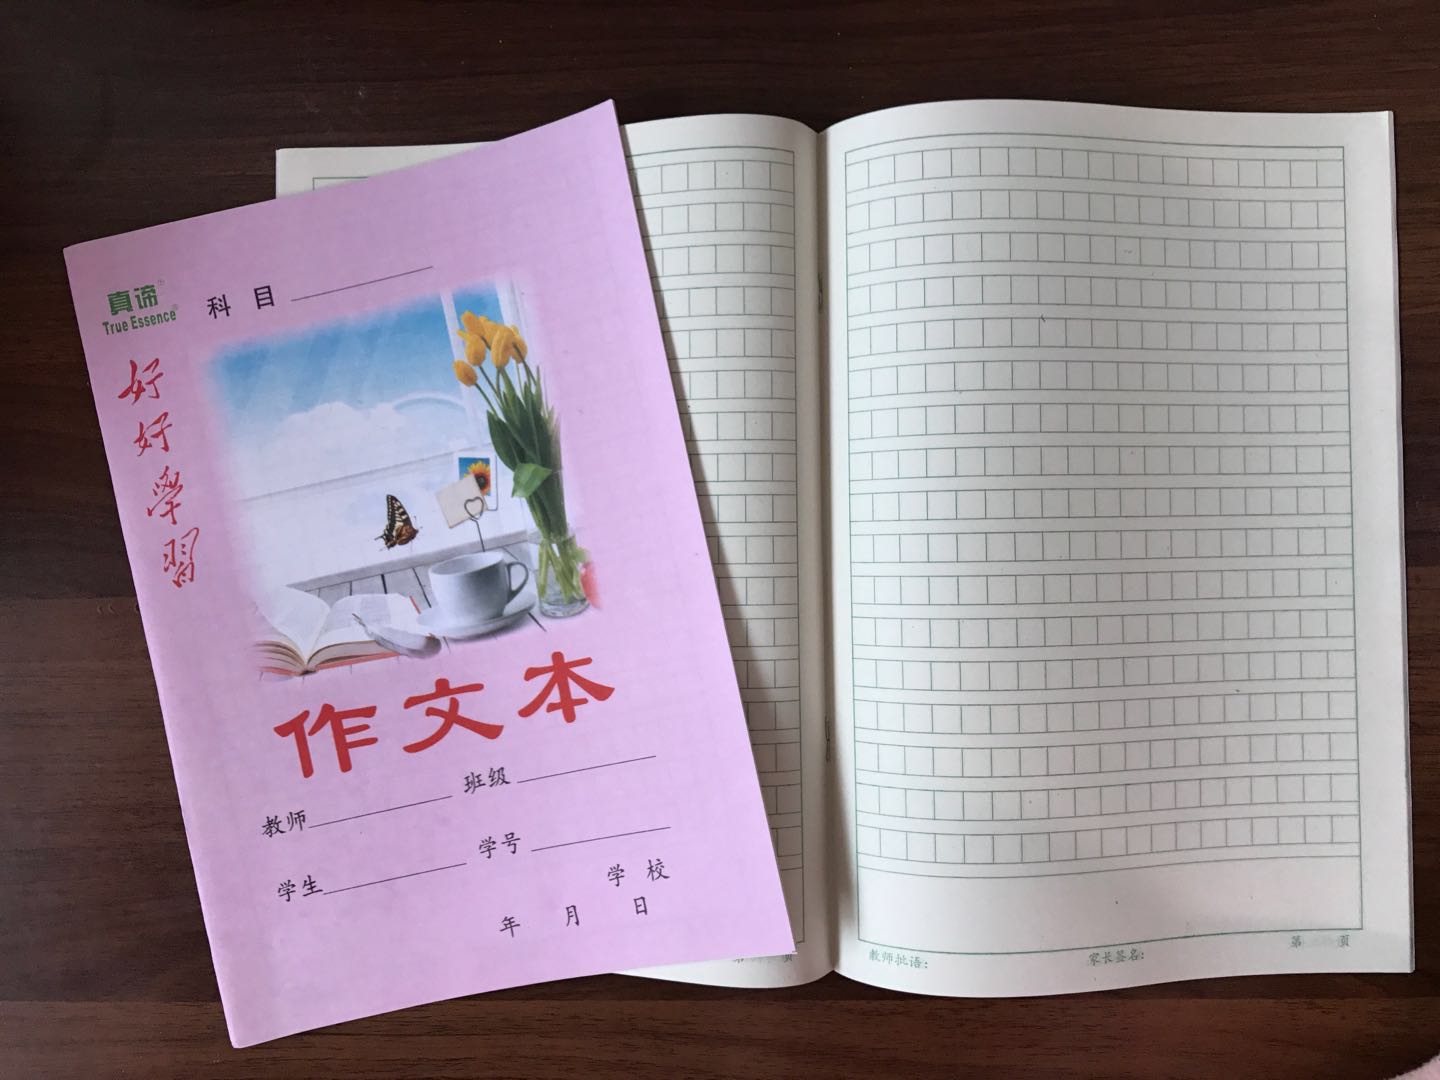 真谛®
True Essence®
科目
好好學習
作文本
教师 班级
学生 学号
学校
年 月 日
第 页
教师批语: 家长签名: 第 頁